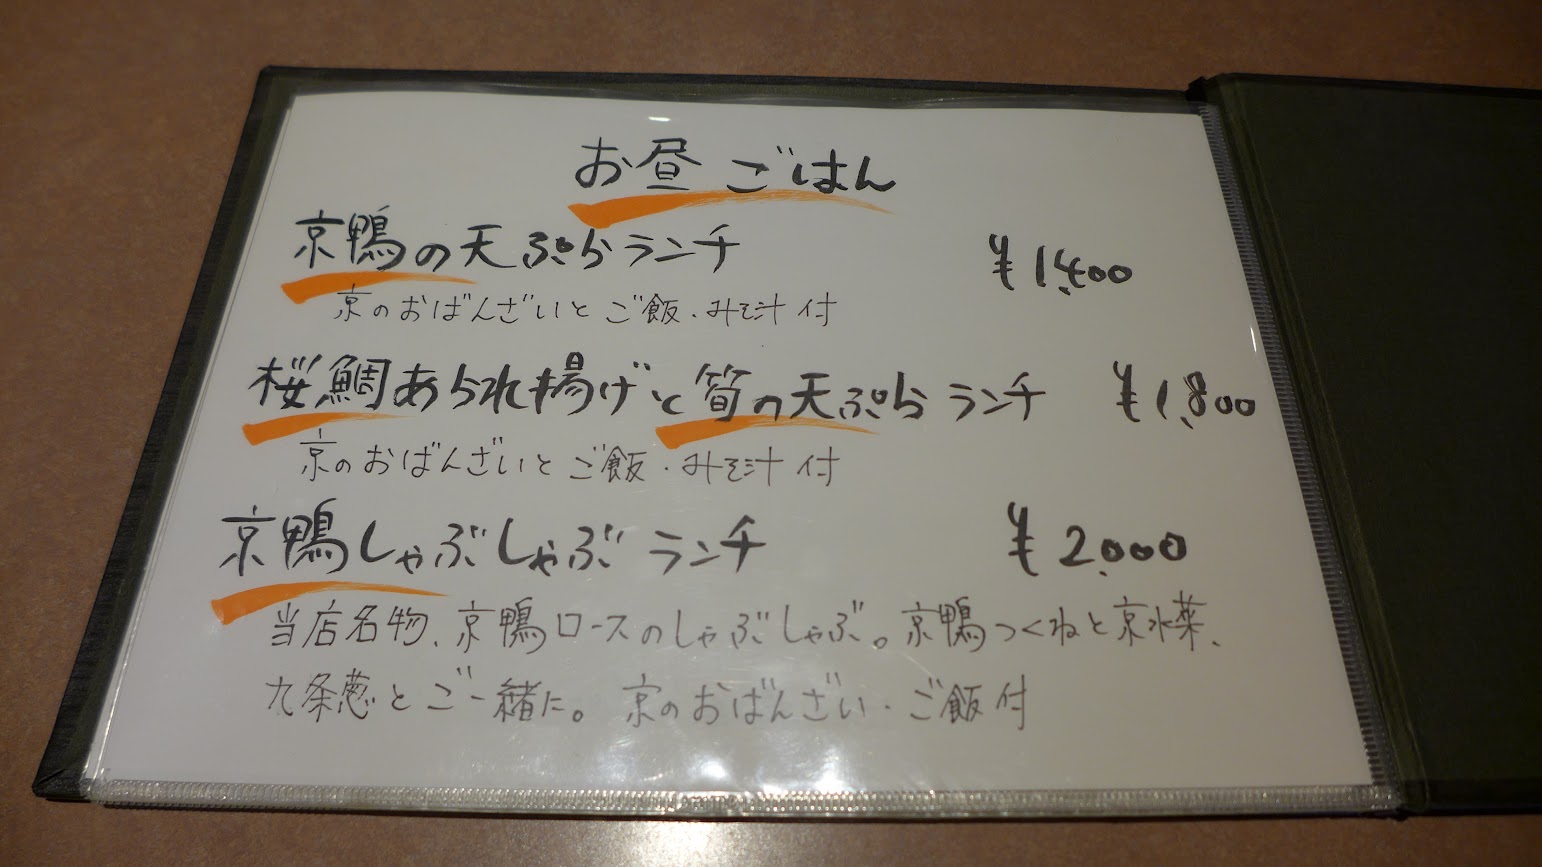 お昼ごはん
京鴨の天ぷらランチ ¥1,400
京のおばんざいとご飯・みそ汁付
桜鯛あられ揚げと筍の天ぷらランチ ¥1,800
京のおばんざいとご飯・みそ汁付
京鴨しゃぶしゃぶランチ ¥2,000
当店名物、京鴨ロースのしゃぶしゃぶ。京鴨つくねと京水菜、
九条葱とご一緒に。京のおばんざい・ご飯付